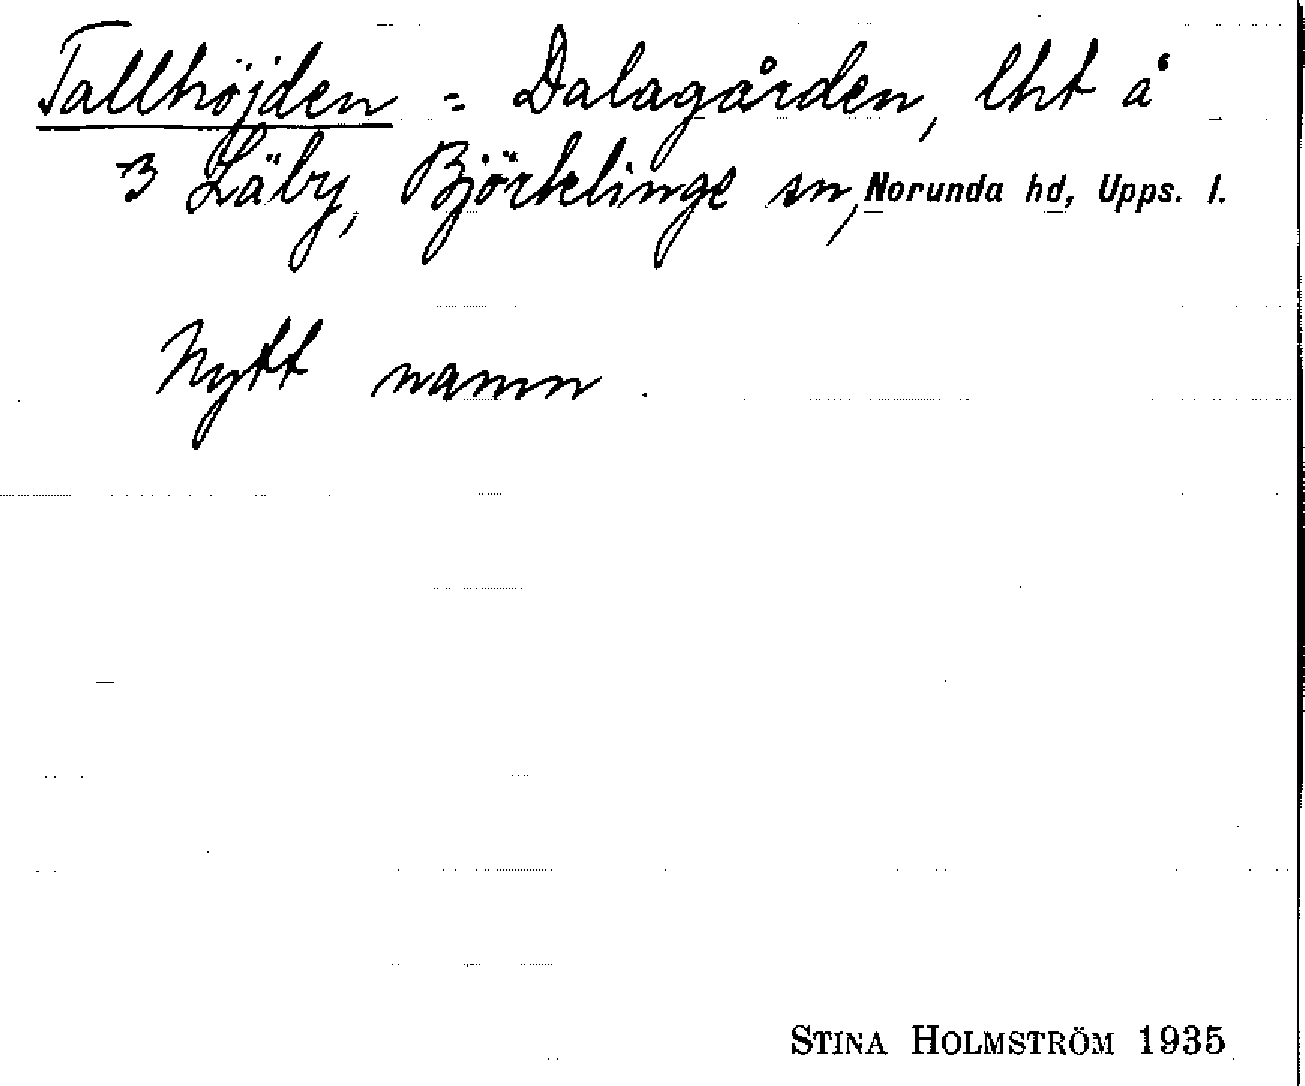 Tallhöjden = Dalagården, lht å
3 Läby, Björklinge sn, Norunda hd, Upps. l.
Nytt namn.
STINA HOLMSTRÖM 1935